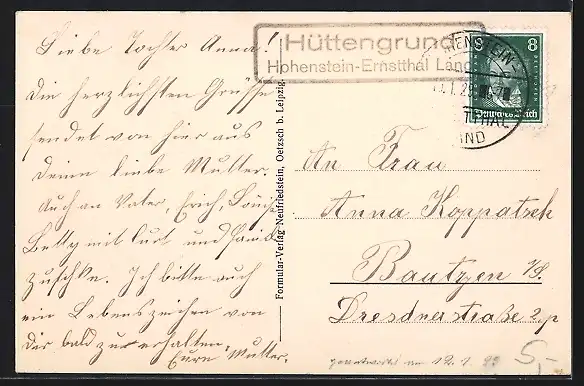 Liebe Tochter Anna!
Die herzlichsten Grüsse
sendet von hier aus
Deine liebe Mutter.
Auch an Vater, Erich, Louis,
Betty mit Kurt und
Ich bitte auch
ein Lebenszeichen von
Dir bald zu erhalten.
Eure Mutter.
Formular-Verlag Neufriedstein, Oetzsch b. Leipzig.
Hüttengrund
Hohenstein-Ernstthal Land
HOHENSTEIN-
LAND
8 8
Deutsches Reich
An Frau
Anna Koppatsch
Bautzen i/S.
Dresdnerstraße 2, p
am 12. 1. 29
5,-